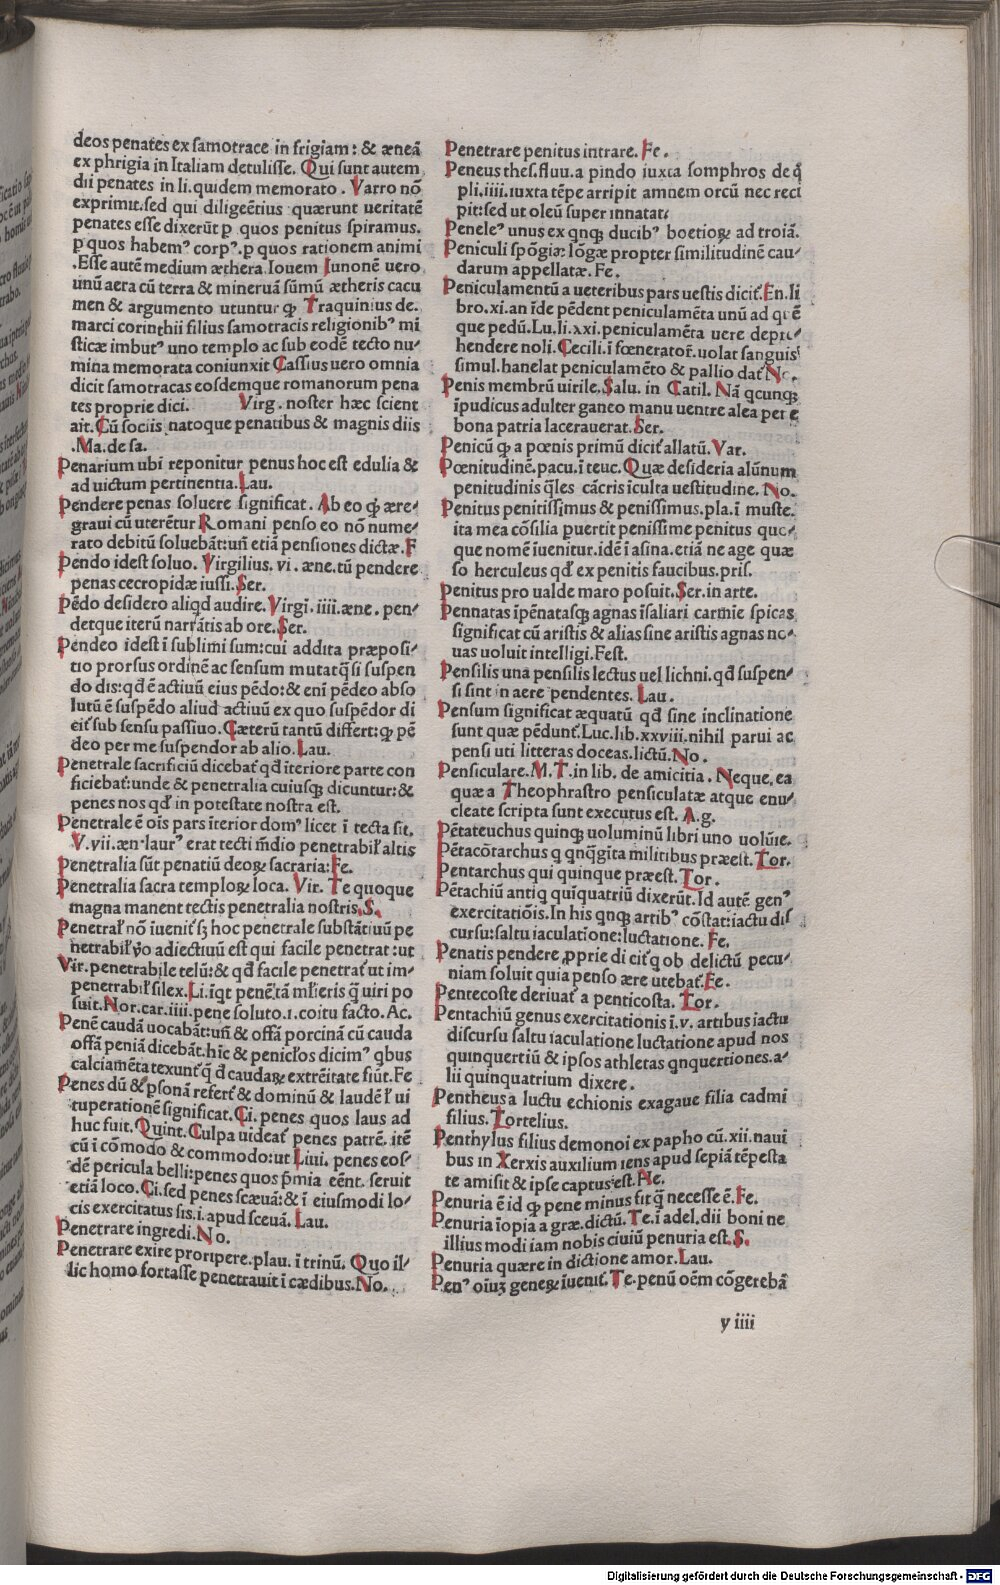 deos penates ex samotrace in frigiam: & æneã
ex phrigia in Italiam detulisse. Qui sunt autem
dii penates in li. quidem memorato. Varro nõ
exprimit. sed qui diligẽtius quærunt ueritatẽ
penates esse dixerũt ꝑ quos penitus spiramus.
ꝑ quos habemꝰ corpꝰ. ꝑ quos rationem animi
.Esse autẽ medium æthera. Iouem Iunonẽ uero
unũ aera cũ terra & mineruã sũmũ ætheris cacu
men & argumento utuntur qꝫ Traquinius de.
marci corinthii filius samotracis religionibꝰ mi
sticæ imbutꝰ uno templo ac sub eodẽ tecto nu-
mina memorata coniunxit Cassius uero omnia
dicit samotracas eosdemque romanorum pena
tes proprie dici. Virg. noster hæc scient
ait. Cũ sociis natoque penatibus & magnis diis
.Ma. de sa.
Penarium ubi reponitur penus hoc est edulia &
ad uictum pertinentia. Lau.
Pendere penas soluere significat. Ab eo qꝫ ære-
graui cũ uterẽtur Romani penso eo nõ nume-
rato debitũ soluebãt: uñ etiã pensiones dictæ. F
Pendo idest soluo. Virgilius. vi. æne. tũ pendere
penas cecropidæ iussi. Ser.
Pẽdo desidero aliqd audire. Virgi. iiii. æne. pen-
detque iterũ narrãtis ab ore. Ser.
Pendeo idest ĩ sublimi sum: cui addita præposi-
tio prorsus ordinẽ ac sensum mutat: q̃si suspen
do dis: qđ ẽ actiuũ eius pẽdo: & eni pẽdeo abso
lutũ ẽ suspẽdo aliud actiuũ ex quo suspẽdor di
cit̃ sub sensu passiuo. Cæterũ tantũ differt: qꝫ pẽ
deo per me suspendor ab alio. Lau.
Penetrale sacrificiũ dicebat̃ qđ ĩteriore parte con
ficiebat̃: unde & penetralia cuiusqꝫ dicuntur: &
penes nos qđ in potestate nostra est.
Penetrale ẽ oĩs pars ĩterior domꝰ licet ĩ tecta sit.
V. vii. æn. laurꝰ erat tecti m̃dio penetrabiƚ altis
Penetralia sũt penatiũ deoꝝ sacraria: Fe.
Penetralia sacra temploꝝ loca. Vir. Te quoque
magna manent tectis penetralia nostris. S.
Penetraƚ nõ iuenit̃ sꝫ hoc penetrale substãtiuũ pe
netrabiƚ v̉o adiectiuũ est qui facile penetrat: ut
Vir. penetrabile telũ: & qđ facile penetrat̃ ut im-
penetrabiƚ silex. Li. ĩqt penẽ tã mƚieris q̃ uiri po
suit. Nor. car. iiii. pene soluto. i. coitu facto. Ac.
Penẽ caudã uocabãt: uñ & offã porcinã cũ cauda
offã peniã dicebãt. hĩc & penicƚos dicimꝰ qbus
calciamẽta texunt̃ q̃ đ caudaꝝ extrẽitate fiũt. Fe
Penes dũ & ꝑsonã refert̃ & dominũ & laudẽ ƚ ui
tuperationẽ significat. Ci. penes quos laus ad
huc fuit. Quint. Culpa uideat̃ penes patrẽ. itẽ
cũ ĩ cõmodo & commodo: ut Liui. penes eos-
dẽ pericula belli: penes quos p̃mia eẽnt. seruit
etiã loco. Ci. sed penes scæuã: & ĩ eiusmodi lo-
cis exercitatus sis. i. apud sceuã. Lau.
Penetrare ingredi. No.
Penetrare exire prorupere. plau. ĩ trinũ. Quo il-
lic homo fortasse penetrauit ĩ cædibus. No.
Penetrare penitus intrare. Fe.
Peneus thes. fluu. a pindo iuxta somphros de q̃
pli. iiii. iuxta tẽpe arripit amnem orcũ nec reci
pit: sed ut oleũ super innatat.
Peneleꝰ unus ex qnqꝫ ducibꝰ boetioꝝ ad troiã.
Peniculi spõgiæ lõgæ propter similitudinẽ cau-
darum appellatæ. Fe.
Peniculamentũ a ueteribus pars uestis dicit̃. En. li
bro. xi. an ĩde pẽdent peniculamẽta unũ ad quẽ
que pedũ. Lu. li. xxi. peniculamẽta uere depre-
hendere noli. Cecili. ĩ fœnerator̃. uolat sanguis
simul. hanelat peniculamẽto & pallio dat̃ No.
Penis membrũ uirile. Salu. in Catil. Nã qcunqꝫ
ĩpudicus adulter ganeo manu uentre alea pene
bona patria lacerauerat. Ser.
Penicũ qꝫ a pœnis primũ dicit̃ allatũ. Var.
Pœnitudinẽ. pacu. ĩ teuc. Quæ desideria alũnum
penitudinis q̃les cãcris ĩculta uestitudine. No.
Penitus penitissimus & penissimus. pla. ĩ muste.
ita mea cõsilia ꝑuertit penissime penitus quc-
que nomẽ ĩuenitur. idẽ ĩ asina. etiã ne age quæ
so herculeus qđ ex penitis faucibus. pris.
Penitus pro ualde maro posuit. Ser. in arte.
Pennatas ĩpẽnatasqꝫ agnas ĩ saliari carmĩe spicas
significat cũ aristis & alias sine aristis agnas no-
uas uoluit intelligi. Fest.
Pensilis una pensilis lectus uel lichni. qđ suspen-
si sint in aere pendentes. Lau.
Pensum significat æquatũ qđ sine inclinatione
sunt quæ pẽdunt̃. Luc. lib. xxviii. nihil parui ac
pensi uti litteras doceas. lictũ. No.
Pensiculare. M. T. in lib. de amicitia. Neque. ea
quæ a Theophrastro pensiculatæ atque enu-
cleate scripta sunt executus est. A. g.
Pẽtateuchus quinqꝫ uoluminũ libri uno uolũie.
Pẽtacõtarchus q qnq̃gĩta militibus præest. Tor.
Pentarchus qui quinque præest. Tor.
Pẽtachiũ antiq quĩquatriũ dixerũt. Id autẽ genꝰ
exercitatiõis. In his qnqꝫ artibꝰ cõstat: iactu dis
cursu: saltu iaculatione: luctatione. Fe.
Penatis pendere ꝓprie di cit̃ qꝫ ob delictũ pecu-
niam soluit quia penso ære utebat̃. Fe.
Pentecoste deriuat̃ a penticosta. Tor.
Pentachiũ genus exercitationis ĩ. v. artibus iactu
discursu saltu iaculatione luctatione apud nos
quinquertiũ & ipsos athletas qnquertiones. a-
lii quinquatrium dixere.
Pentheus a luctu echionis exagaue filia cadmi
filius. Tortelius.
Penthylus filius demonoi ex papho cũ. xii. naui
bus in Xerxis auxilium iens apud sepiã tẽpesta
te amisit & ipse captus est. He.
Penuria ẽ id qꝫ pene minus sit q̃ necesse ẽ. Fe.
Penuria ĩopia a græ. dictũ. Te. ĩ adel. dii boni ne
illius modi iam nobis ciuiũ penuria est. S.
Penuria quære in dictione amor. Lau.
Penꝰ oĩuꝫ geneꝝ ĩuenit̃. Te. penũ oẽm cõgerebã
y iiii
Digitalisierung gefördert durch die Deutsche Forschungsgemeinschaft - DFG